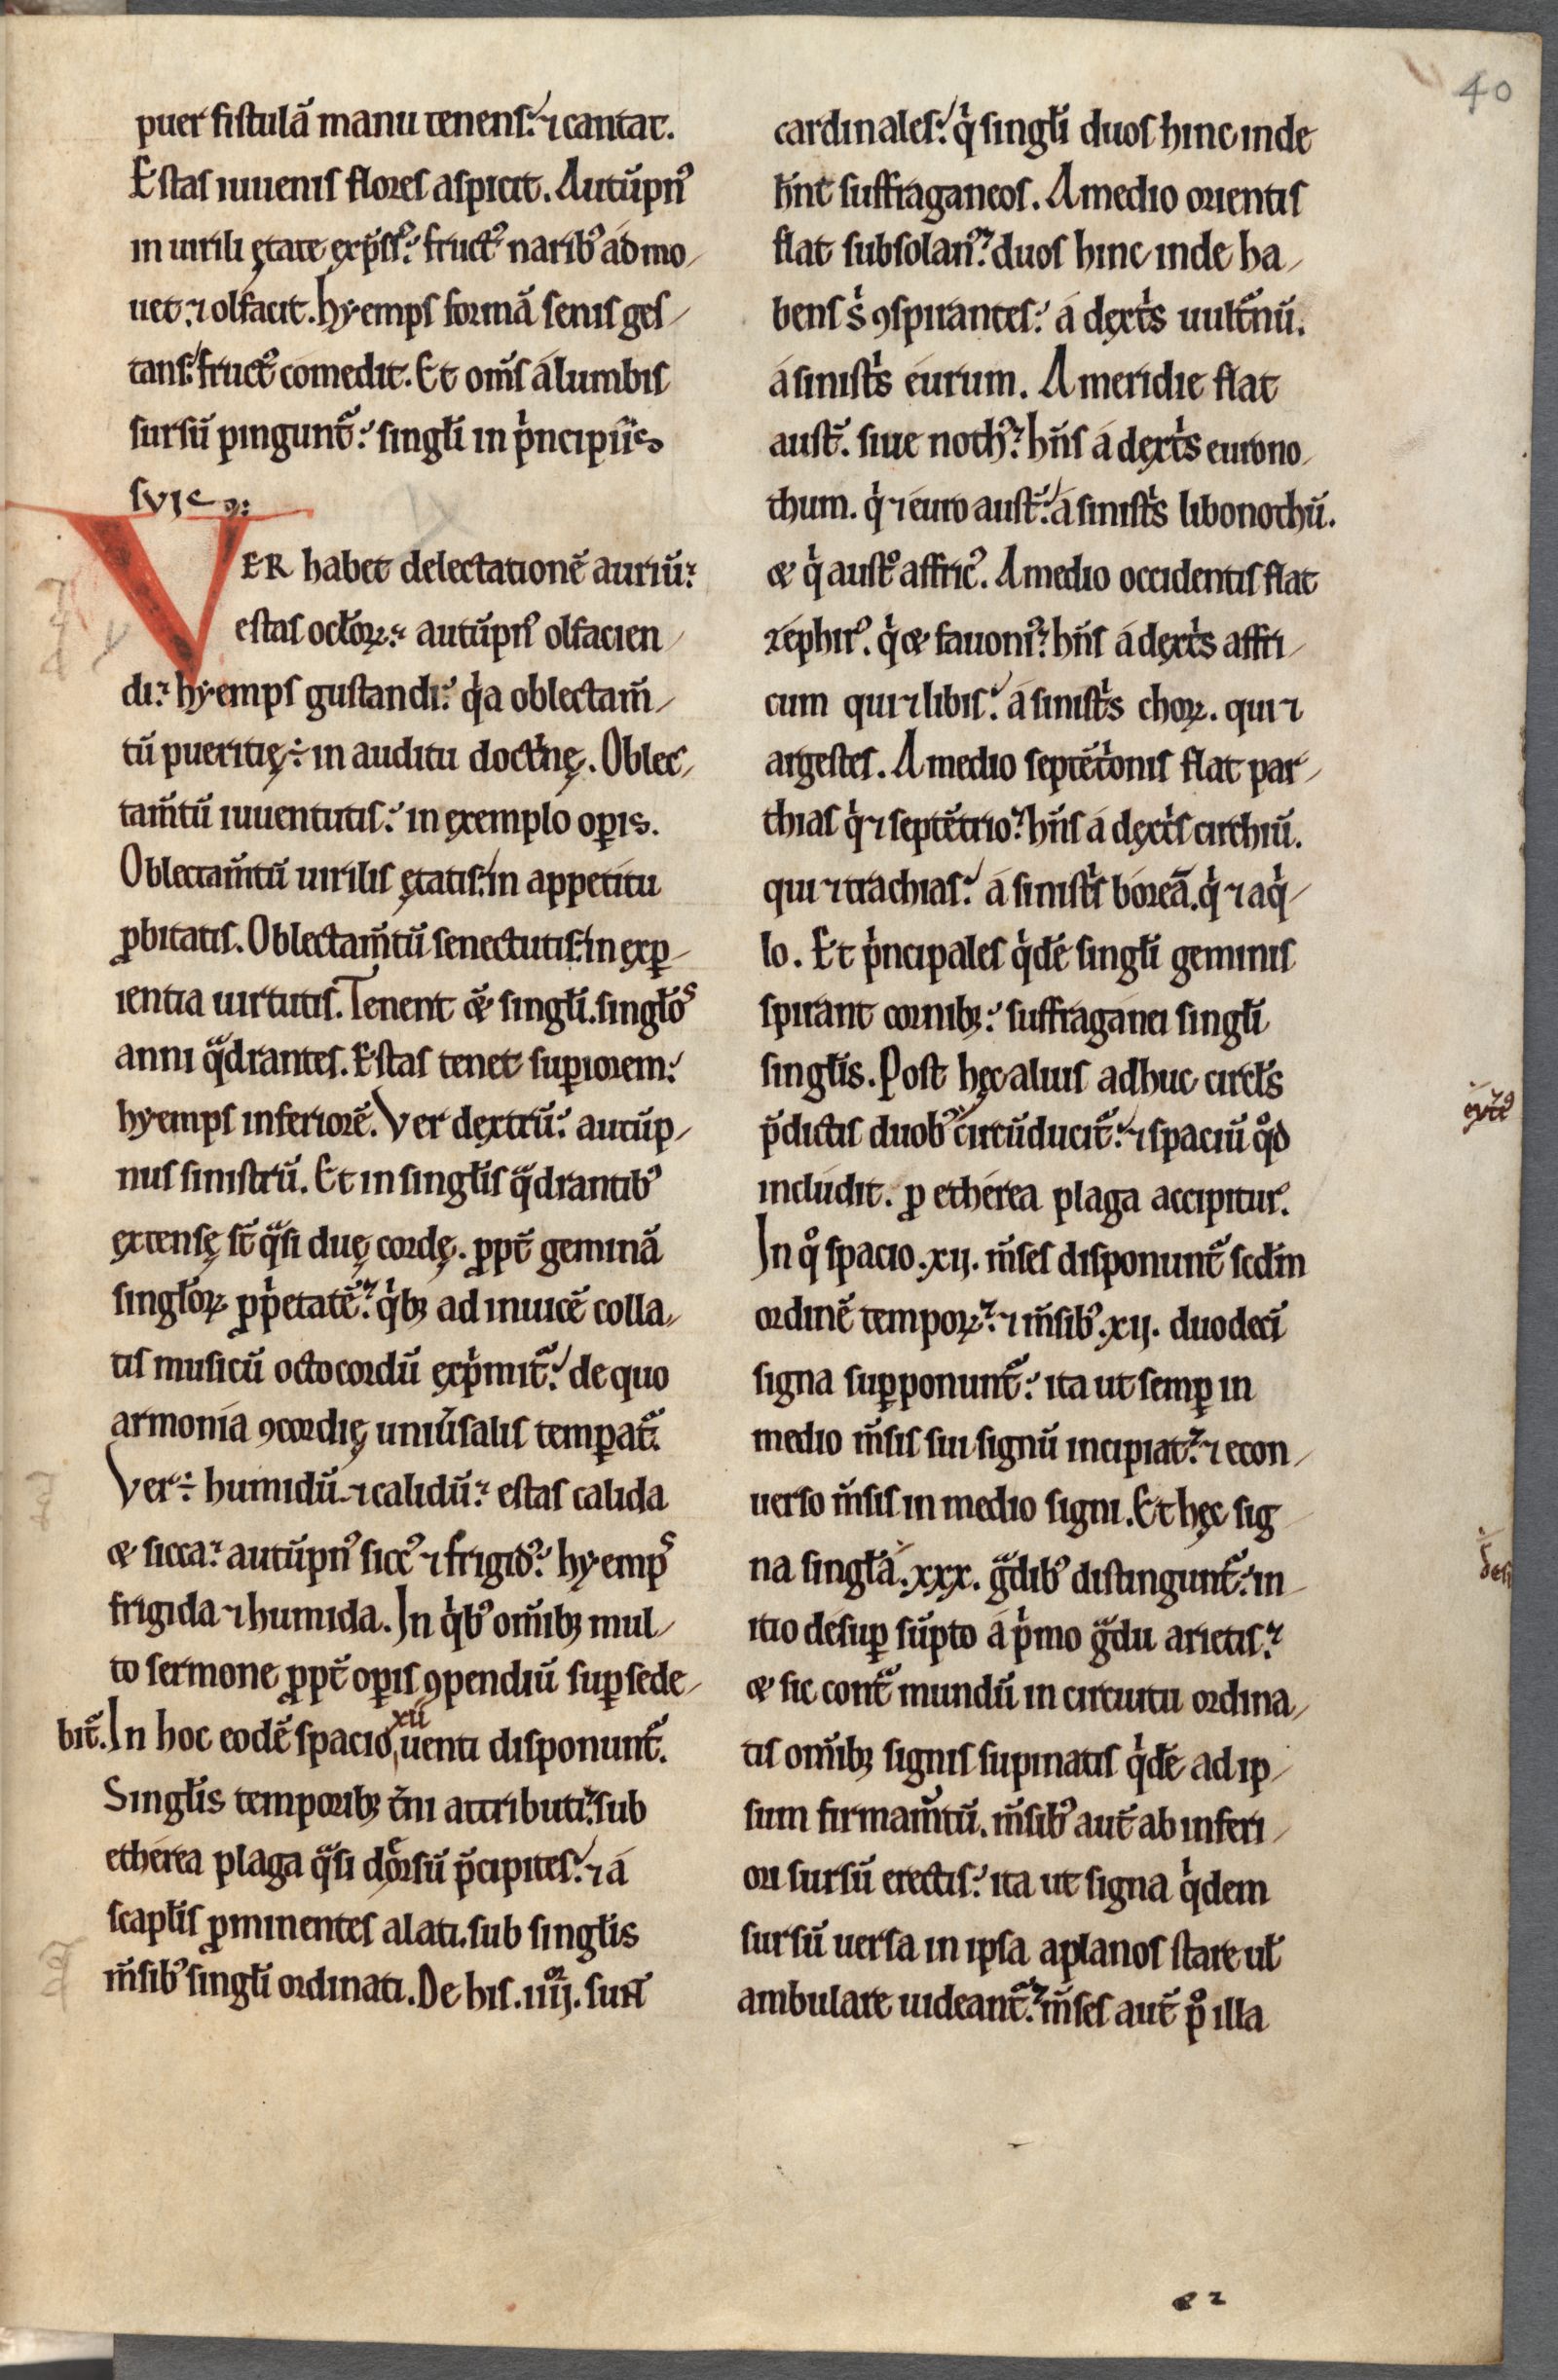 40
puer fistulā manu tenens. ⁊ cantat.
Estas iuuenis flores aspicit. Autūpnꝰ
in uirili ętate exp̄ssꝰ. fructꝰ naribꝰ admo
uet. ⁊ olfacit. hyemps formā senis ges
tans. fructꝰ comedit. Et om̄s a lumbis
sursū pingunt᷑. singłi in pⁱncipiis
suis.
VER habet delectationē auriū.
estas ocłoꝝ. autūpnꝰ olfacien
di. hyemps gustandi. qⁱa oblectam̄
tū pueritię ÷ in auditu doctⁱnę. Oblec
tam̄tū iuuentutis. in exemplo oꝑis.
Oblectam̄tū uirilis ętatis. in appetitu
ꝓbitatis. Oblectam̄tū senectutis. in exꝑ
ientia uirtutis. Tenent &̄ singłi. singłos
anni qᵃdrantes. Estas tenet suꝑiorem.
hyemps inferiorē. Ver dextrū. autūp
nus sinistrū. Et in singłis qᵃdrantibꝰ
extensę st̄ qᵃsi duę cordę. ꝓpt̄ geminā
singłoꝝ ꝓpⁱetatē. qⁱbꝫ ad inuicē colla
tis musicū octocordū expⁱmit᷑. de quo
armonia ꝯcordię uniū̄salis temꝑat᷑.
Ver ÷ humidū ⁊ calidū. estas calida
& sicca. autūpnꝰ siccꝰ ⁊ frigidꝰ. hyemps
frigida ⁊ humida. In qⁱbꝰ om̄ibꝫ mul
to sermone ꝓpt̄ oꝑis ꝯpendiū suꝑsede
bit᷑. In hoc eodē spacio xii uenti disponunt᷑.
Singłis temporibꝫ t̄ni attributi. sub
etherea plaga qᵃsi deorsū p̄cipites. ⁊ a
scapłis ꝓminentes alati. sub singłis
m̄sibꝰ singłi ordinati. De his .iiijᵒʳ. sunt
cardinales. qⁱ singłi duos hinc inde
hn̄t suffraganeos. A medio orientis
flat subsolanꝰ. duos hinc inde ha
bens sⁱ ꝯspirantes. a dextⁱs uult᷑nū.
a sinistⁱs eurum. A meridie flat
aust᷑. siue nothꝰ. hn̄s a dextⁱs eurono
thum. qⁱ ⁊ euro aust᷑. a sinistⁱs libonothū.
& qⁱ austᵒ affricꝰ. A medio occidentis flat
zephirꝰ. qⁱ & fauoniꝰ. hn̄s a dextⁱs affri
cum qui ⁊ libis. a sinistⁱs choꝝ. qui ⁊
argestes. A medio septētⁱonis flat par
thias qⁱ ⁊ septētrio. hn̄s a dextⁱs circhiū.
qui ⁊ trachias. a sinistⁱs boreā. qⁱ ⁊ aqⁱ
lo. Et pⁱncipales qⁱdē singłi geminis
spirant cornibꝫ. suffraganei singłi
singłis. Post hęc alius adhuc circłs
p̄dictis duobꝰ circūducit᷑. ⁊ spaciū qᵒd
includit. ꝓ etherea plaga accipitur.
In qᵒ spacio .xij. m̄ses disponunt᷑ scdm̄
ordinē tempoꝝ. ⁊ m̄sibꝰ .xij. duodecī
signa suꝑponunt᷑. ita ut semꝑ in
medio m̄sis sui signū incipiat᷑. ⁊ econ
uerso m̄sis in medio signi. Et hęc sig
na singła .xxx. gᵃdibꝰ distingunt᷑. in
itio desuꝑ sūpto a pⁱmo gᵃdu arietis.
& sic contᵃ mundū in circuitu ordina
tis om̄ibꝫ signis supinatis qⁱdē ad ip
sum firmam̄tū. m̄sibꝰ aut̄ ab inferi
ori sursū erectis. ita ut signa qⁱdem
sursū uersa in ipsa aplanos stare uł
ambulare uideant᷑. m̄ses aut̄ pᵒ illa